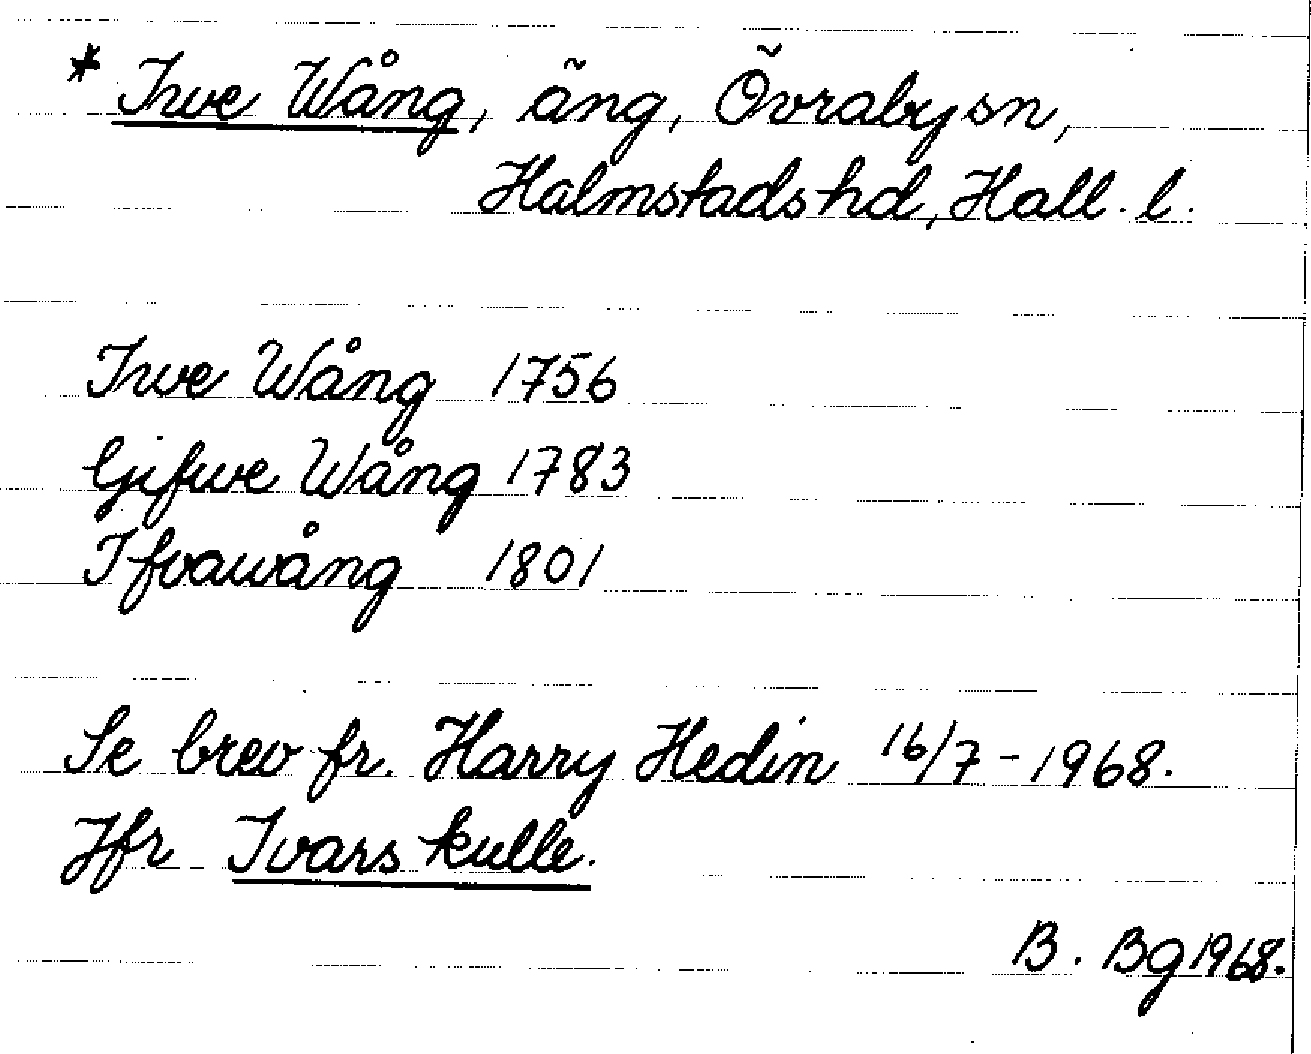 * Irve Wång, äng, Övraby sn,
Halmstads hd, Hall. l.
Irve Wång 1756
Gifwe Wång 1783
Ifvawång 1801
Se brev fr. Harry Hedin 16/7 - 1968.
Jfr Ivars kulle.
B. Bg 1968.